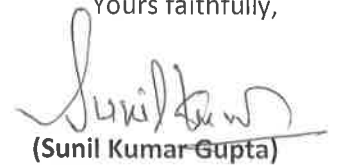 Yours faithfully,
Sunil Kumar
(Sunil Kumar Gupta)